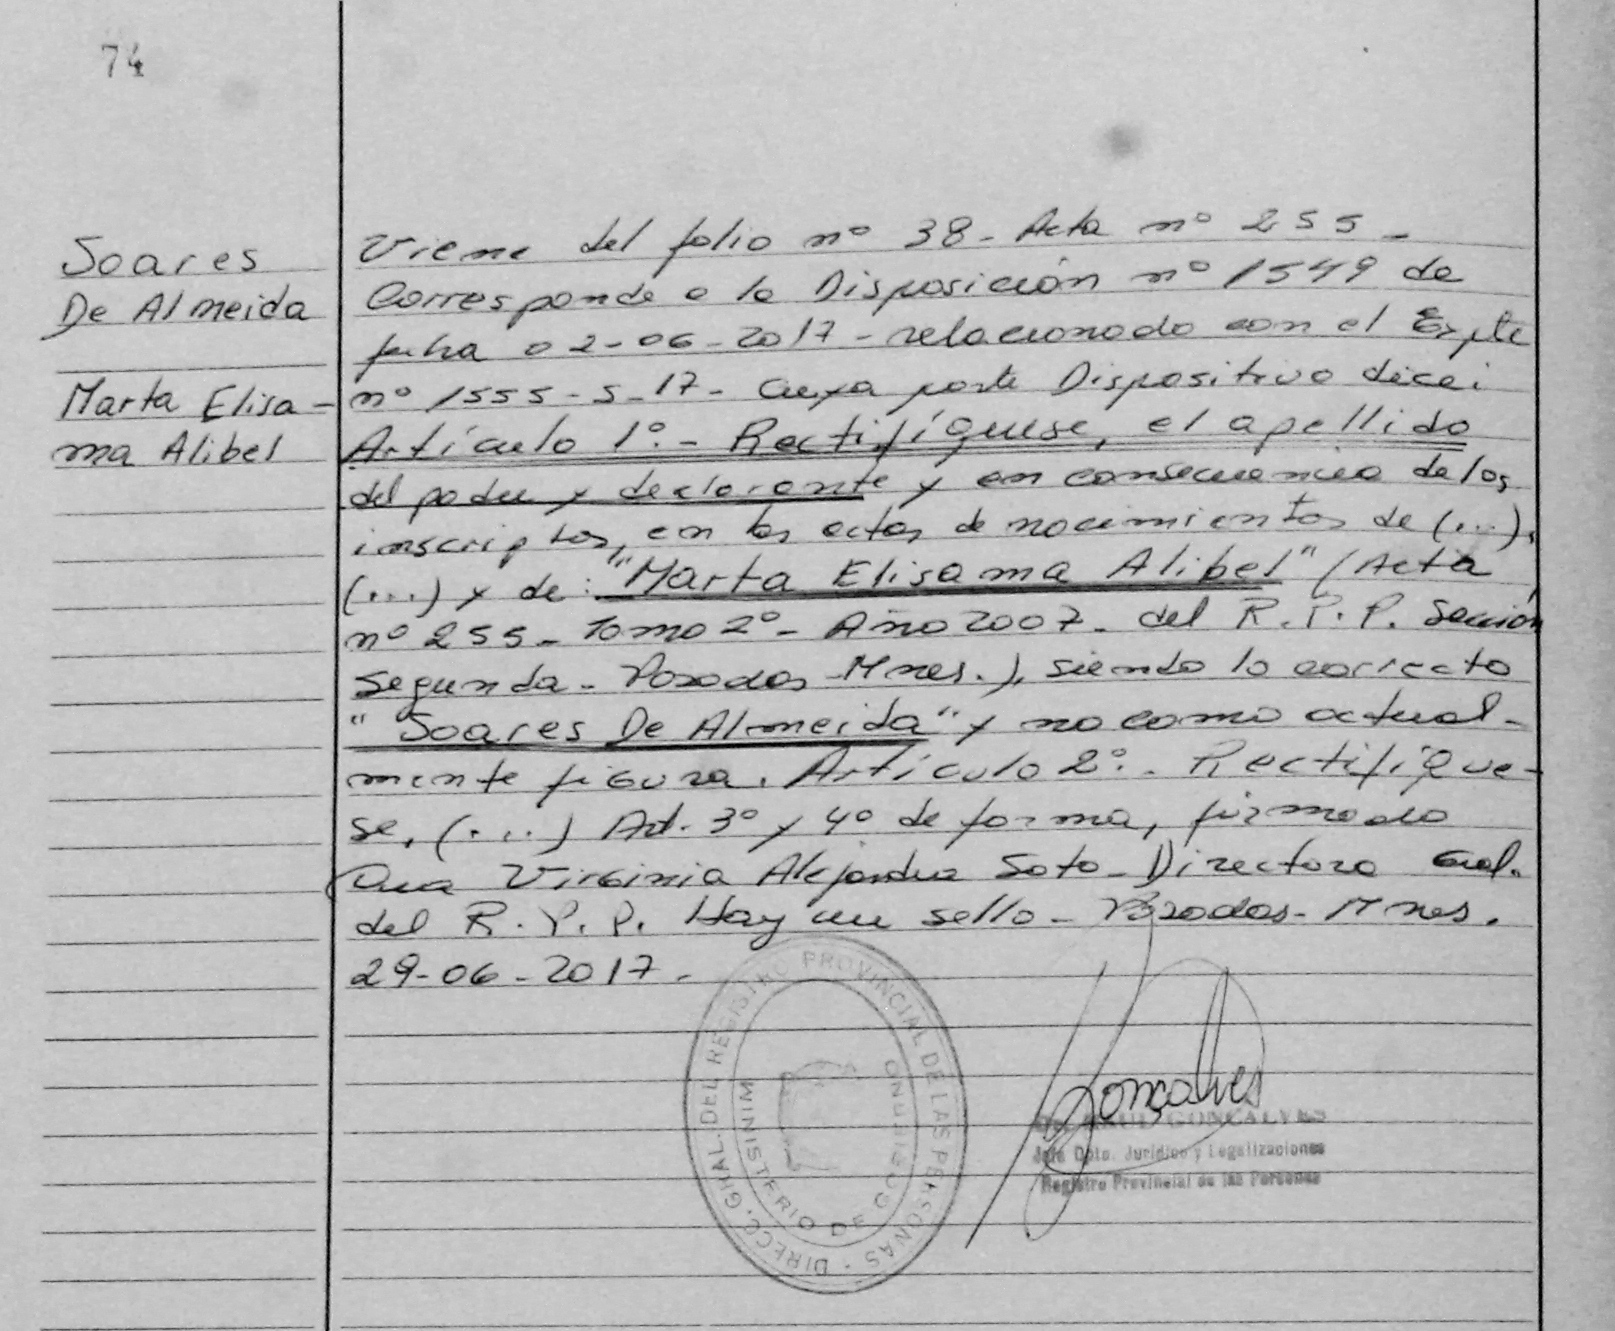 74
Soares
De Almeida
Marta Elisa-
ma Alibel
Viene del folio nº 38 - Acta nº 255 -
Corresponde a la Disposición nº 1549 de
fecha 02-06-2017 - relacionado con el Expte
nº 1555-S-17 - Cuya parte Dispositiva dice:
Artículo 1º.- Rectifíquese, el apellido
del padre y declarante y en consecuencia de los
inscriptos, en las actas de nacimientos de (...),
(...) y de: "Marta Elisama Alibel" (Acta
nº 255 - Tomo 2º - Año 2007 - del R.P.P. Sección
Segunda - Posadas - Mnes.), siendo lo correcto
"Soares De Almeida" y no como actual-
mente figura. Artículo 2º.- Rectifíque-
se, (...) Art. 3º y 4º de forma, firmado
Virginia Alejandra Soto - Directora Gral.
del R.P.P. Hay un sello - Posadas - Mnes.
29-06-2017.
DIRECC. GRAL. DEL REGISTRO PROVINCIAL DE LAS PERSONAS
MINISTERIO DE GOBIERNO
Goncalves
RAUL GONCALVES
Jefe Dpto. Jurídico y Legalizaciones
Registro Provincial de las Personas